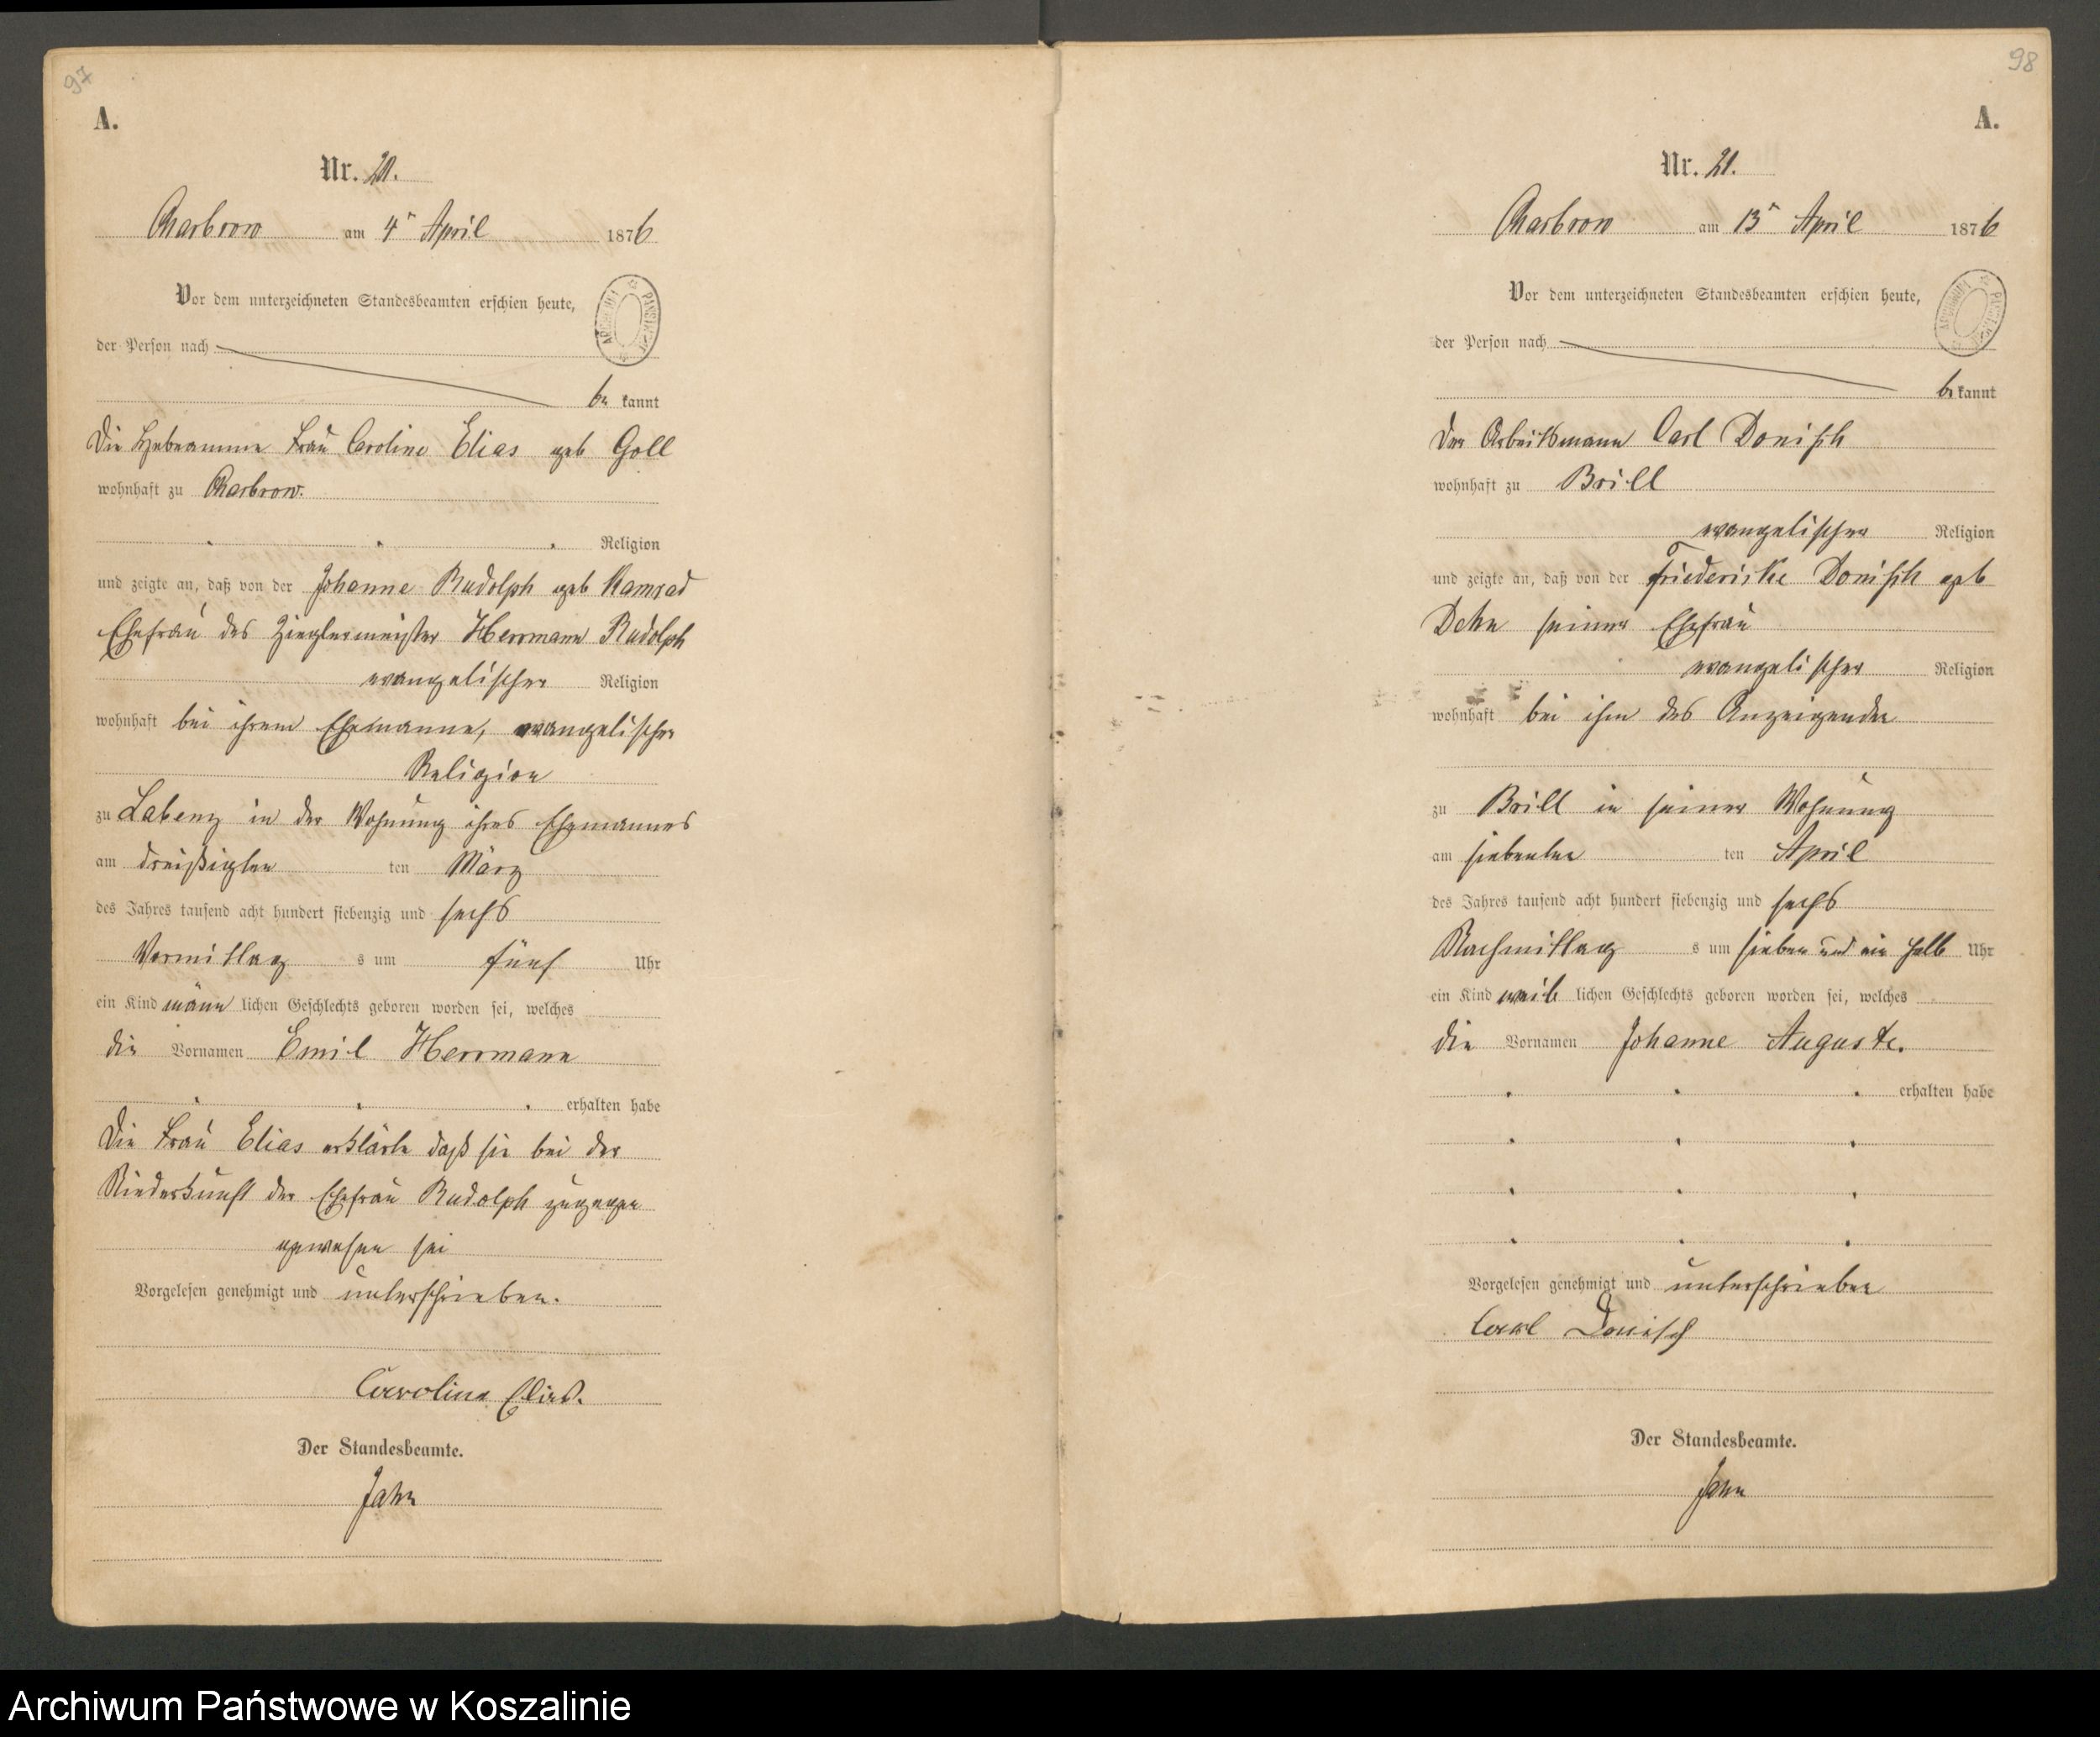 97
A.
Nr. 20.
Charbrow am 4ᵗ April 1876
Vor dem unterzeichneten Standesbeamten erschien heute,
der Person nach
be kannt
Die Hebeamme Frau Caroline Elias geb Goll
wohnhaft zu Charbrow.
Religion
und zeigte an, daß von der Johanne Rudolph geb Kamrad
Ehefrau des Zieglermeister Herrmann Rudolph
evangelischer Religion
wohnhaft bei ihrem Ehemanne, evangelischer
Religion
zu Labenz in der Wohnung ihres Ehemannes
am dreißigten ten März
des Jahres tausend acht hundert siebenzig und sechs
Vormittag s um fünf Uhr
ein Kind männ lichen Geschlechts geboren worden sei, welches
die Vornamen Emil Herrmann
erhalten habe
Die Frau Elias erklärte daß sie bei der
Niederkunft der Ehefrau Rudolph zugegen
gewesen sei
Vorgelesen genehmigt und unterschrieben.
Caroline Elias.
Der Standesbeamte.
Jahn
98
A.
Nr. 21.
Charbrow am 13ᵗ April 1876
Vor dem unterzeichneten Standesbeamten erschien heute,
der Person nach
be kannt
Der Arbeitsmann Carl Donisch
wohnhaft zu Brill
evangelischer Religion
und zeigte an, daß von der Friederike Donisch geb
Dehn seiner Ehefrau
evangelischer Religion
wohnhaft bei ihm des Anzeigender
zu Brill in seiner Wohnung
am siebenten ten April
des Jahres tausend acht hundert siebenzig und sechs
Nachmittag s um sieben und ein halb Uhr
ein Kind weib lichen Geschlechts geboren worden sei, welches
die Vornamen Johanne Auguste.
erhalten habe
Vorgelesen genehmigt und unterschrieben
Carl Donisch
Der Standesbeamte.
Jahn
Archiwum Państwowe w Koszalinie